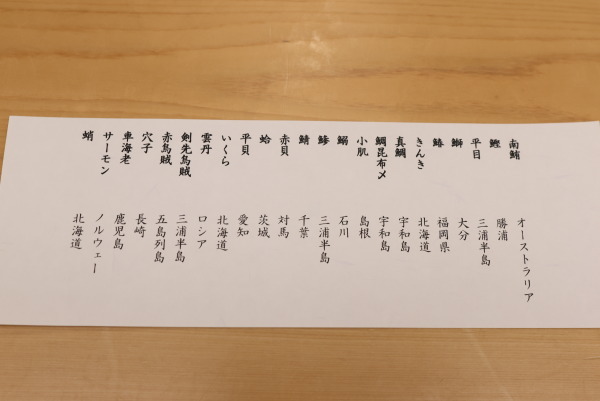 南鮪 オーストラリア
鰹 勝浦
平目 三浦半島
鰤 大分
鰆 福岡県
きんき 北海道
真鯛 宇和島
鯛昆布〆 宇和島
小肌 島根
鰯 石川
鯵 三浦半島
鯖 千葉
赤貝 対馬
蛤 茨城
平貝 愛知
いくら 北海道
雲丹 ロシア
剣先烏賊 三浦半島
赤烏賊 五島列島
穴子 長崎
車海老 鹿児島
サーモン ノルウェー
蛸 北海道